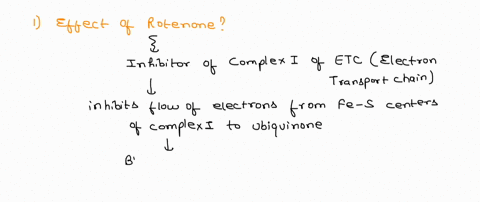 1) Effect of Rotenone?
Inhibitor of Complex I of ETC (Electron
Transport chain)
inhibits flow of electrons from Fe-S centers
of complex I to ubiquinone
B'